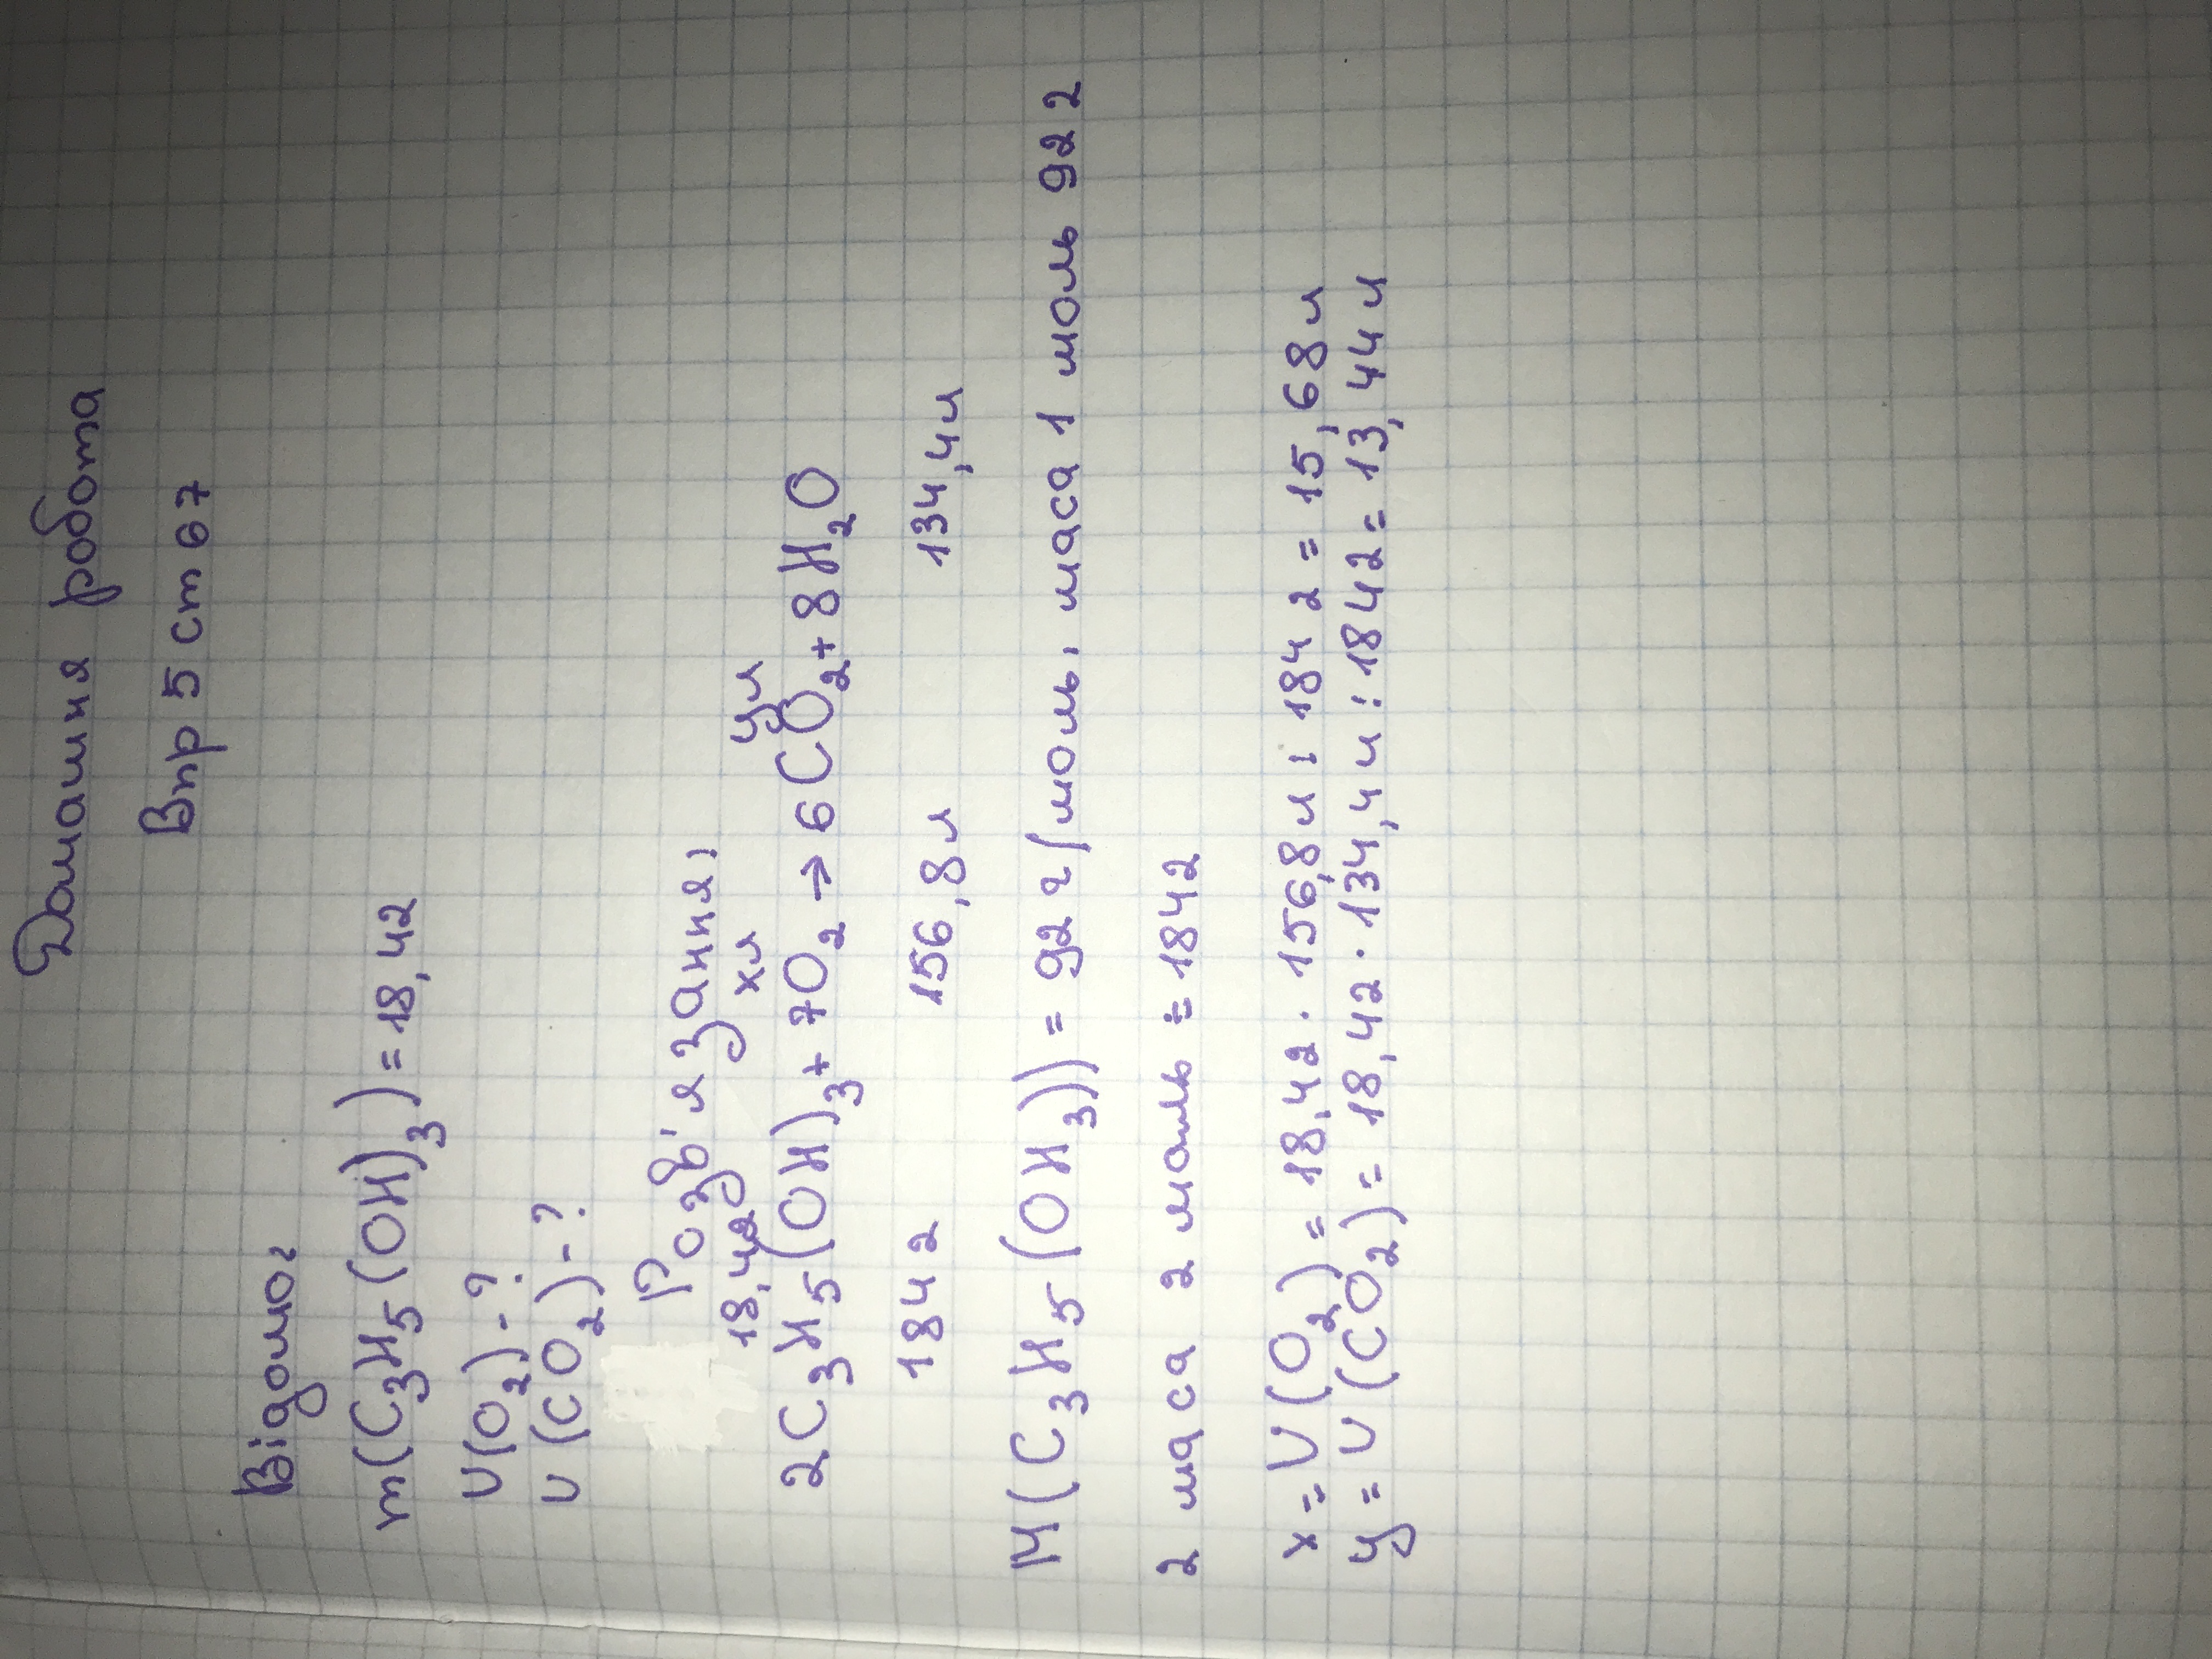 Домашня робота
Впр 5 ст 67
Відомо:
m(C₃H₅(OH)₃)=18,4г
V(O₂)-?
V(CO₂)-?
Розв'язання:
18,4г хл ул
2C₃H₅(OH)₃+7O₂→6CO₂+8H₂O
184г 156,8л 134,4л
M(C₃H₅(OH₃))=92г/моль, маса 1 моль 92г
2 маса 2 моль = 184г
x=V(O₂)=18,4г·156,8л:184г=15,68л
y=V(CO₂)=18,4г·134,4л:184г=13,44л